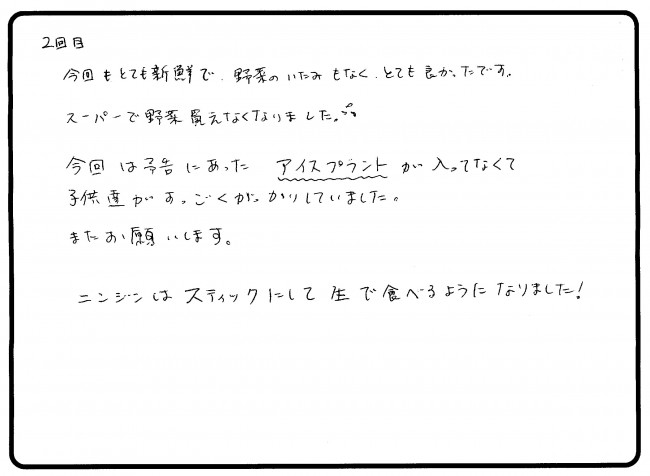 2回目
今回もとても新鮮で、野菜のいたみもなく、とても良かったです。
スーパーで野菜買えなくなりました。
今回は予告にあった アイスプラント が入ってなくて
子供達がすっごくがっかりしていました。
またお願いします。
ニンジンはスティックにして生で食べるようになりました!